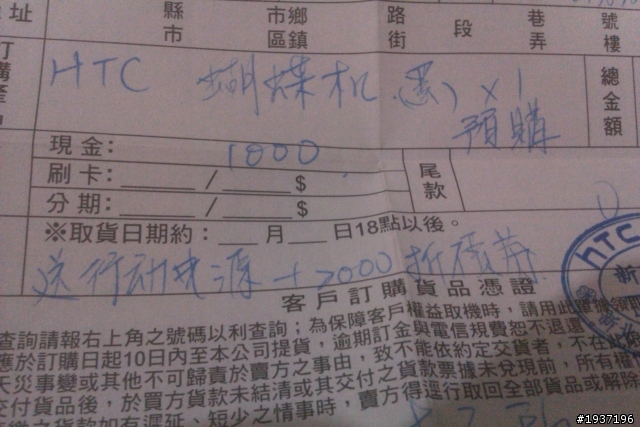 址 縣市 市鄉區鎮 路街 段 巷弄 號樓
HTC 蝴蝶机 (黑) x1 總金額
預購
現金： 1000
刷卡：______/______$ 尾款
分期：______/______$
※取貨日期約：___月___日18點以後。
送行动电源+2000折價券
hTC
客戶訂購貨品憑證
查詢請報右上角之號碼以利查詢；為保障客戶權益取機時，請用此
應於訂購日起10日內至本公司提貨，逾期訂金與電信規費恕不退還
天災事變或其他不可歸責於賣方之事由，致不能依約定交貨者，不在此限
交付貨品後，於買方貨款未結清或其交付之貨款票據未兌現前，所有權
之貨款如有遲延、短少之情事時，賣方得逕行取回全部貨品或解除
#1937196